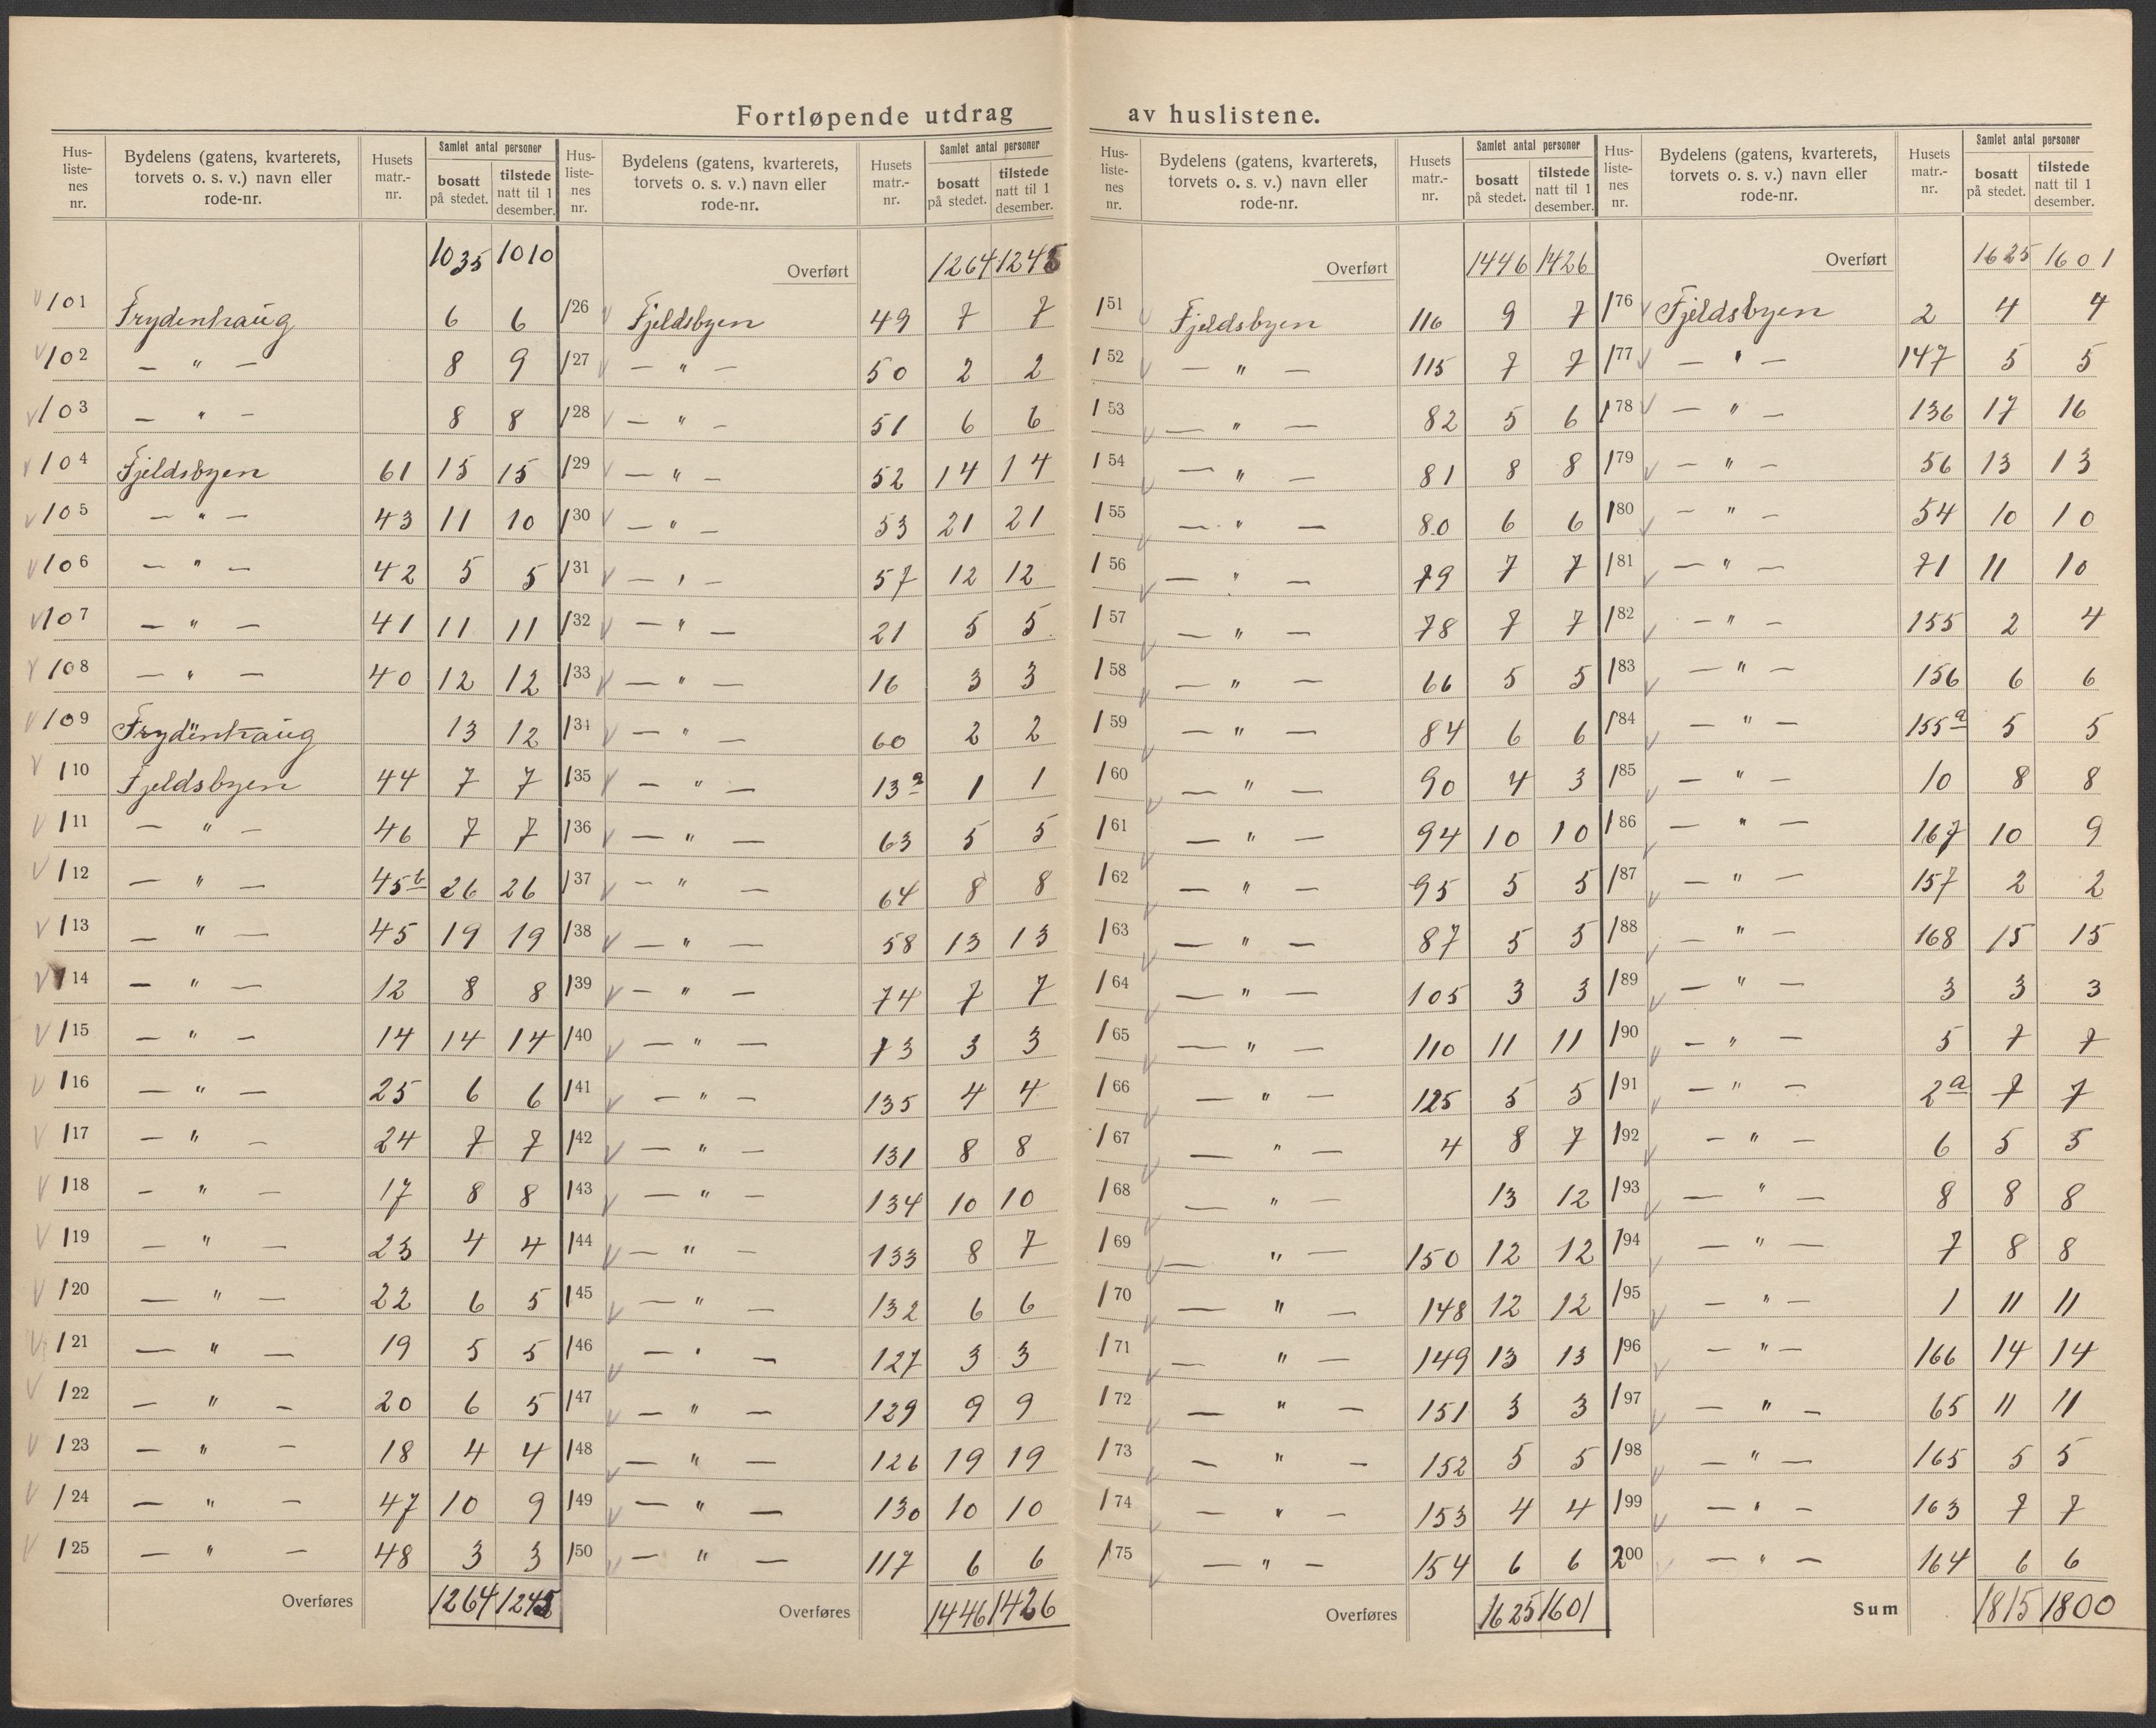 Fortløpende utdrag av huslistene.
Hus-listenes nr. | Bydelens (gatens, kvarterets, torvets o. s. v.) navn eller rode-nr. | Husets matr.-nr. | Samlet antal personer bosatt på stedet. | tilstede natt til 1 desember.
1035 1010
101 Frydenhaug 6 6
102 — " — 8 9
103 — " — 8 8
104 Fjeldsbyen 61 15 15
105 — " — 43 11 10
106 — " — 42 5 5
107 — " — 41 11 11
108 — " — 40 12 12
109 Frydenhaug 13 12
110 Fjeldsbyen 44 7 7
111 — " — 46 7 7
112 — " — 45b 26 26
113 — " — 45 19 19
114 — " — 12 8 8
115 — " — 14 14 14
116 — " — 25 6 6
117 — " — 24 7 7
118 — " — 17 8 8
119 — " — 23 4 4
120 — " — 22 6 5
121 — " — 19 5 5
122 — " — 20 6 5
123 — " — 18 4 4
124 — " — 47 10 9
125 — " — 48 3 3
Overføres 1264 1245
Hus-listenes nr. | Bydelens (gatens, kvarterets, torvets o. s. v.) navn eller rode-nr. | Husets matr.-nr. | Samlet antal personer bosatt på stedet. | tilstede natt til 1 desember.
Overført 1264 1245
126 Fjeldsbyen 49 7 7
127 — " — 50 2 2
128 — " — 51 6 6
129 — " — 52 14 14
130 — " — 53 21 21
131 — " — 57 12 12
132 — " — 21 5 5
133 — " — 16 3 3
134 — " — 60 2 2
135 — " — 13a 1 1
136 — " — 63 5 5
137 — " — 64 8 8
138 — " — 58 13 13
139 — " — 74 7 7
140 — " — 73 3 3
141 — " — 135 4 4
142 — " — 131 8 8
143 — " — 134 10 10
144 — " — 133 8 7
145 — " — 132 6 6
146 — " — 127 3 3
147 — " — 129 9 9
148 — " — 126 19 19
149 — " — 130 10 10
150 — " — 117 6 6
Overføres 1446 1426
Hus-listenes nr. | Bydelens (gatens, kvarterets, torvets o. s. v.) navn eller rode-nr. | Husets matr.-nr. | Samlet antal personer bosatt på stedet. | tilstede natt til 1 desember.
Overført 1446 1426
151 Fjeldsbyen 116 9 7
152 — " — 115 7 7
153 — " — 82 5 6
154 — " — 81 8 8
155 — " — 80 6 6
156 — " — 79 7 7
157 — " — 78 7 7
158 — " — 66 5 5
159 — " — 84 6 6
160 — " — 90 4 3
161 — " — 94 10 10
162 — " — 95 5 5
163 — " — 87 5 5
164 — " — 105 3 3
165 — " — 110 11 11
166 — " — 125 5 5
167 — " — 4 8 7
168 — " — 13 12
169 — " — 150 12 12
170 — " — 148 12 12
171 — " — 149 13 13
172 — " — 151 3 3
173 — " — 152 5 5
174 — " — 153 4 4
175 — " — 154 6 6
Overføres 1625 1601
Hus-listenes nr. | Bydelens (gatens, kvarterets, torvets o. s. v.) navn eller rode-nr. | Husets matr.-nr. | Samlet antal personer bosatt på stedet. | tilstede natt til 1 desember.
Overført 1625 1601
176 Fjeldsbyen 2 4 4
177 — " — 147 5 5
178 — " — 136 17 16
179 — " — 56 13 13
180 — " — 54 10 10
181 — " — 71 11 10
182 — " — 155 2 4
183 — " — 156 6 6
184 — " — 155a 5 5
185 — " — 10 8 8
186 — " — 167 10 9
187 — " — 157 2 2
188 — " — 168 15 15
189 — " — 3 3 3
190 — " — 5 7 7
191 — " — 2a 7 7
192 — " — 6 5 5
193 — " — 8 8 8
194 — " — 7 8 8
195 — " — 1 11 11
196 — " — 166 14 14
197 — " — 65 11 11
198 — " — 165 5 5
199 — " — 163 7 7
200 — " — 164 6 6
Sum 1815 1800